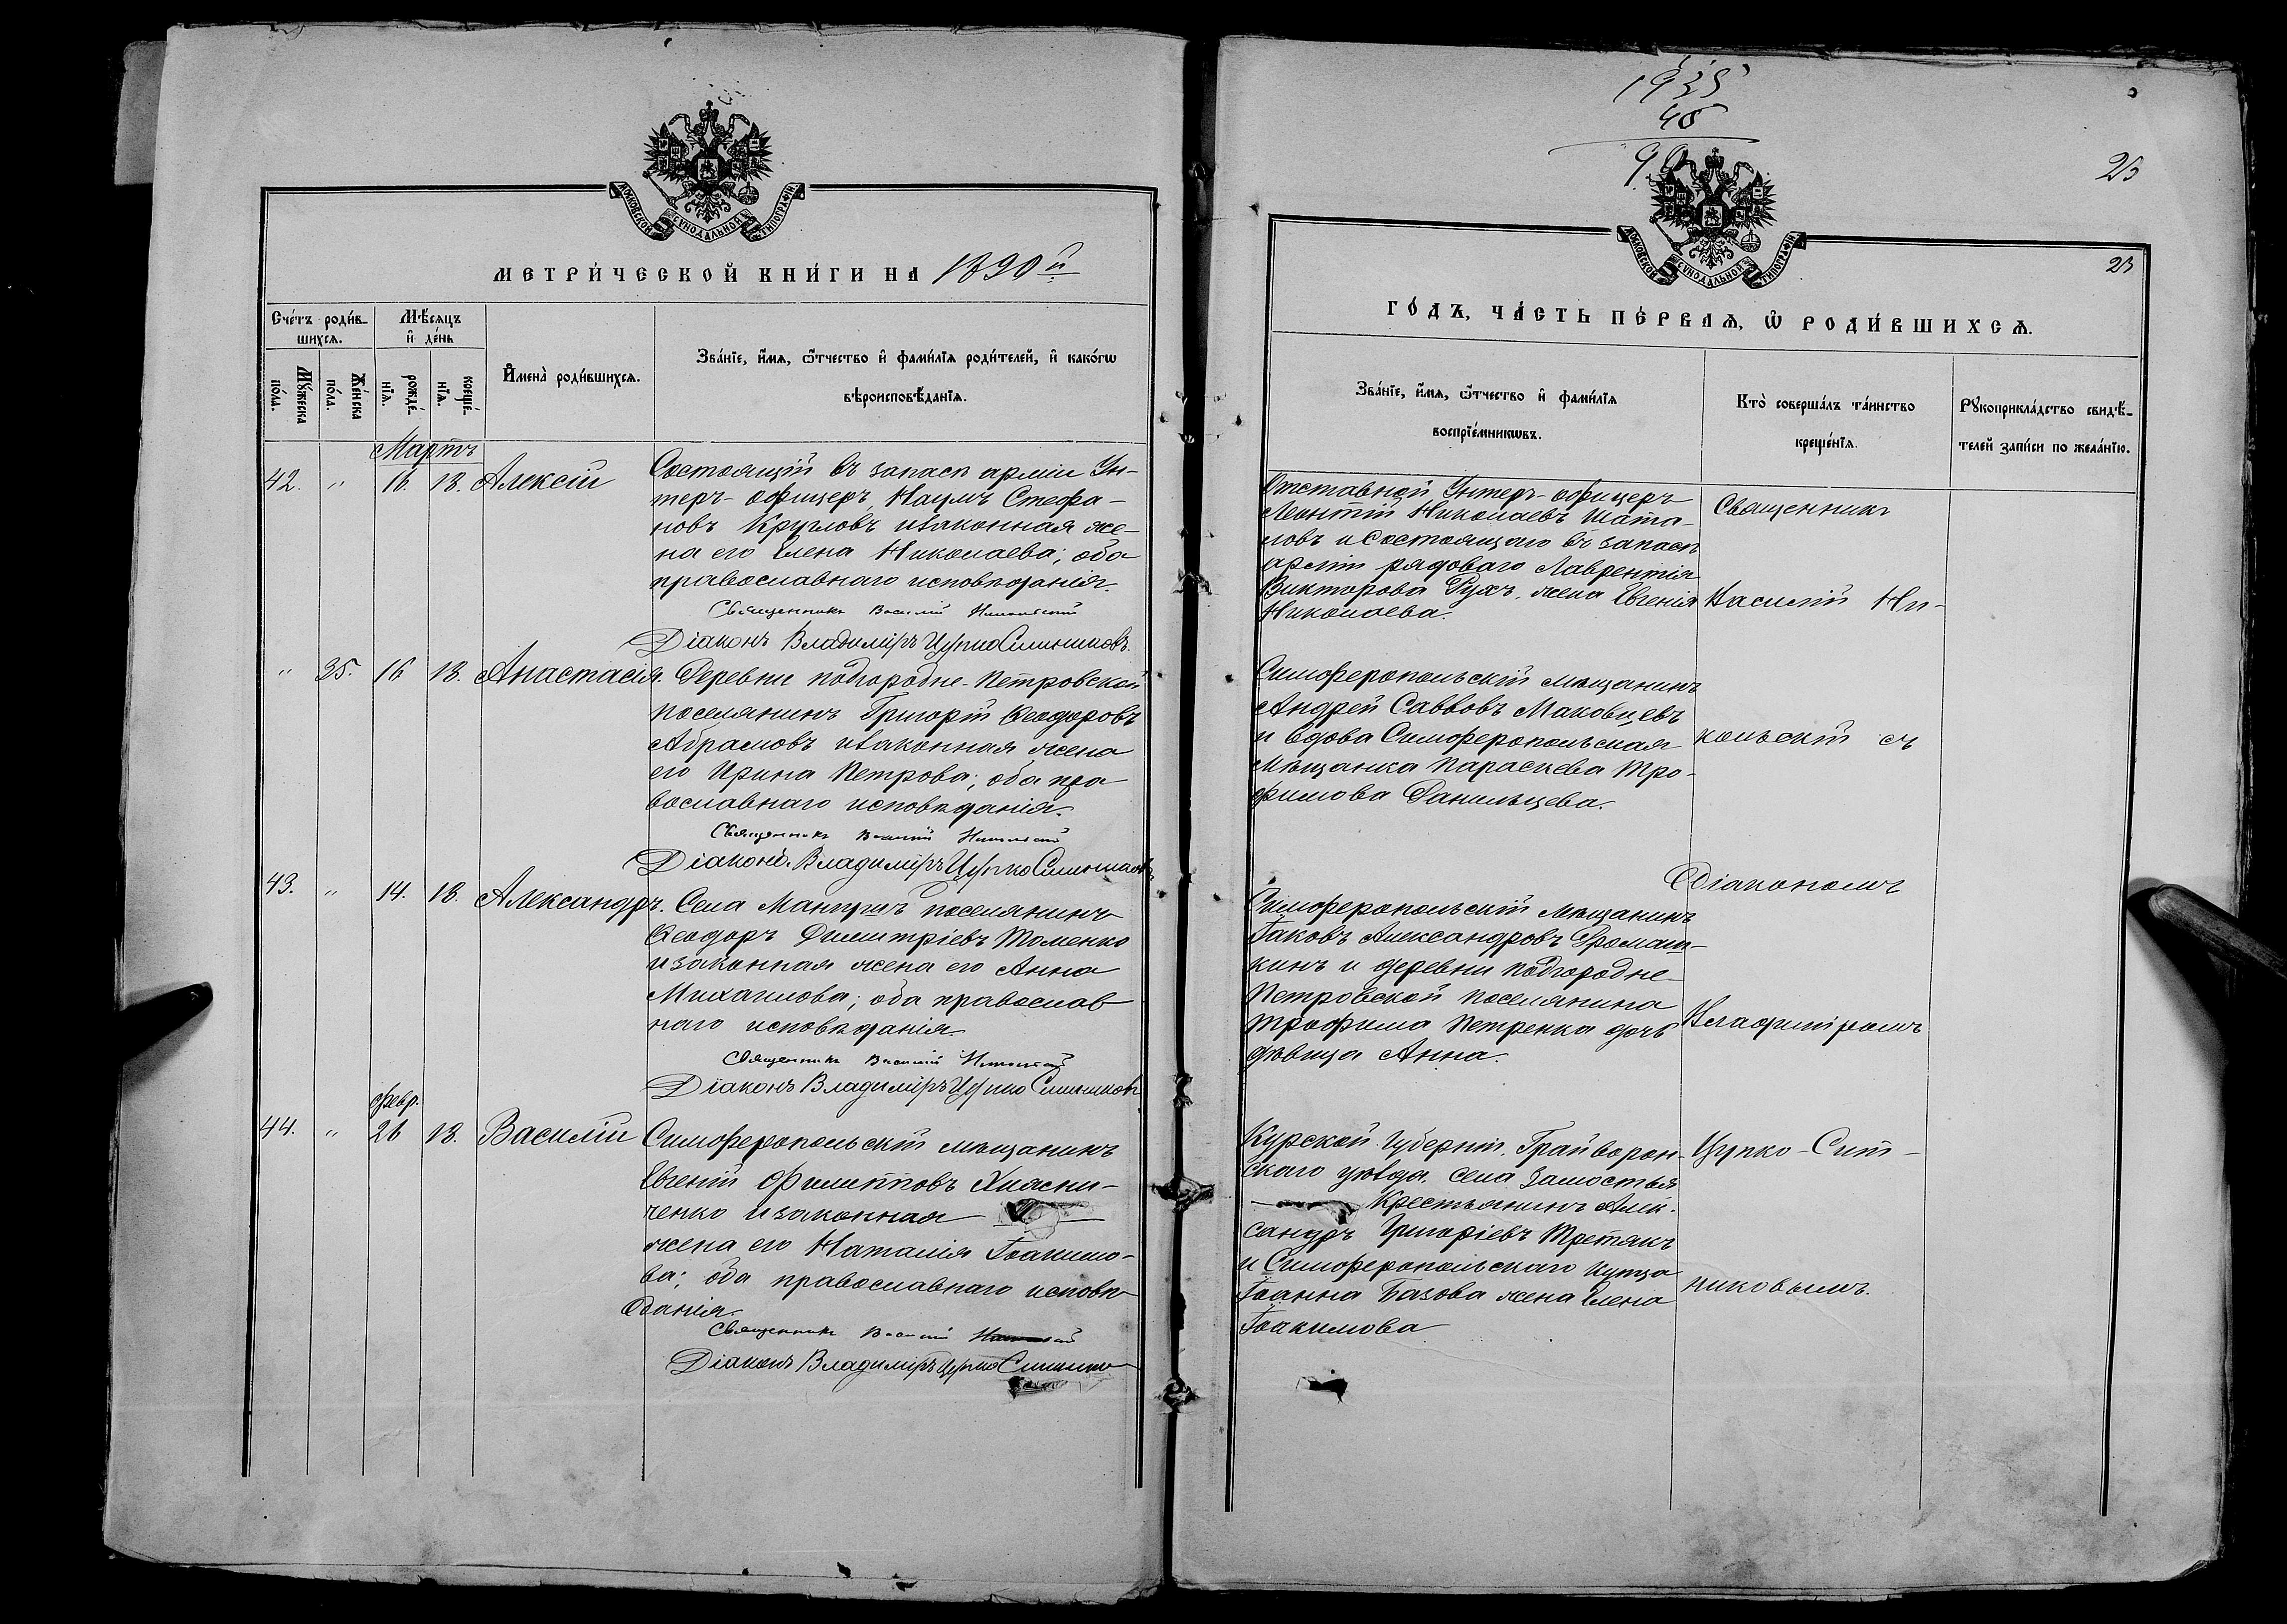 МОСКОВСКОЙ СѴНОДАЛЬНОЙ ТИПОГРАФІИ
МЕТРИ́ЧЕСКОЙ КНИ́ГИ НА 1890 й
Сче́тъ роди́в-
шихсѧ.
Мѣ́сѧцъ
и҆ де́нь
Мꙋ́жеска
по́ла.
Же́нска
по́ла.
рожде́-
нїѧ.
креще́-
нїѧ.
И҆мена̀ роди́вшихсѧ.
Зва́нїе, и҆́мѧ, ѻ҆́тчество и҆ фами́лїѧ роди́телей, и҆ како́гѡ
вѣроисповѣ́данїѧ.
Мартъ
42. " 16. 18. Алексій
Состоящій въ запасѣ арміи Ун-
теръ-офицеръ, Наумъ Стефа-
новъ Кругловъ и законная же-
на его Елена Николаева; оба
православнаго исповѣданія.
Священникъ Василій Никольскій
Діаконъ Владиміръ Цупко Ситниковъ.
" 35. 16 18. Анастасія.
Деревни Подгородне-Петровской
поселянинъ Григорій Ѳеодоровъ
Абрамовъ и законная жена
его Ирина Петрова; оба пра-
вославнаго исповѣданія.
Священникъ Василій Никольскій
Діаконъ Владиміръ Цупко Ситниковъ
43. " 14. 18. Александръ.
Села Мангушъ поселянинъ
Ѳеодоръ Димитріевъ Томенко
и законная жена его Анна
Михаилова; оба православ-
наго исповѣданія.
Священникъ Василій Никольскій
Діаконъ Владиміръ Цупко Ситниковъ
Февр.
44. " 26 18. Василій
Симферопольскій мѣщанинъ
Евгеній Филипповъ
ченко и законная
жена его Наталія Іоакимо-
ва; оба православнаго исповѣ-
данія.
Священникъ Василій Никольскій
Діаконъ Владиміръ Цупко Ситников
1935
45
90
25
МОСКОВСКОЙ СѴНОДАЛЬНОЙ ТИПОГРАФІИ
23
ГО́ДЪ, ЧА́СТЬ ПЕ́РВАѦ, Ѡ҆ РОДИ́ВШИХСѦ.
Зва́нїе, и҆́мѧ, ѻ҆́тчество и҆ фами́лїѧ
воспрїе́мникѡвъ.
Кто̀ соверша́лъ та́инство
креще́нїѧ.
Рꙋкоприкла́дство свидѣ́-
телей за́писи по жела́нїю.
Отставной Унтеръ-офицеръ
Леонтій Николаевъ Шата-
ловъ и состоящаго въ запасѣ
арміи рядоваго Лаврентія
Викторова Рухъ, жена Евгенія
Николаева.
Симферопольскій мѣщанинъ
Андрей Савввовъ Маковцевъ
и вдова Симферопольская
мѣщанка Параскева Тро-
фимова Данильцева.
Симферопольскій мѣщанинъ
Іаковъ Александровъ Ермаш-
кинъ и деревни Подгородне-
Петровской поселянина
Трофима Петренка дочь
дѣвица Анна.
Курской губерніи, Грайворон-
скаго уѣзда, села Замостья
крестьянинъ Алек-
сандръ Григоріевъ Третякъ
и Симферопольскаго купца
Іоанна Базова жена Елена
Іоакимова
Священникъ
Василій Ни-
кольскій съ
Діакономъ
Владиміромъ
Цупко-Сит-
никовымъ.